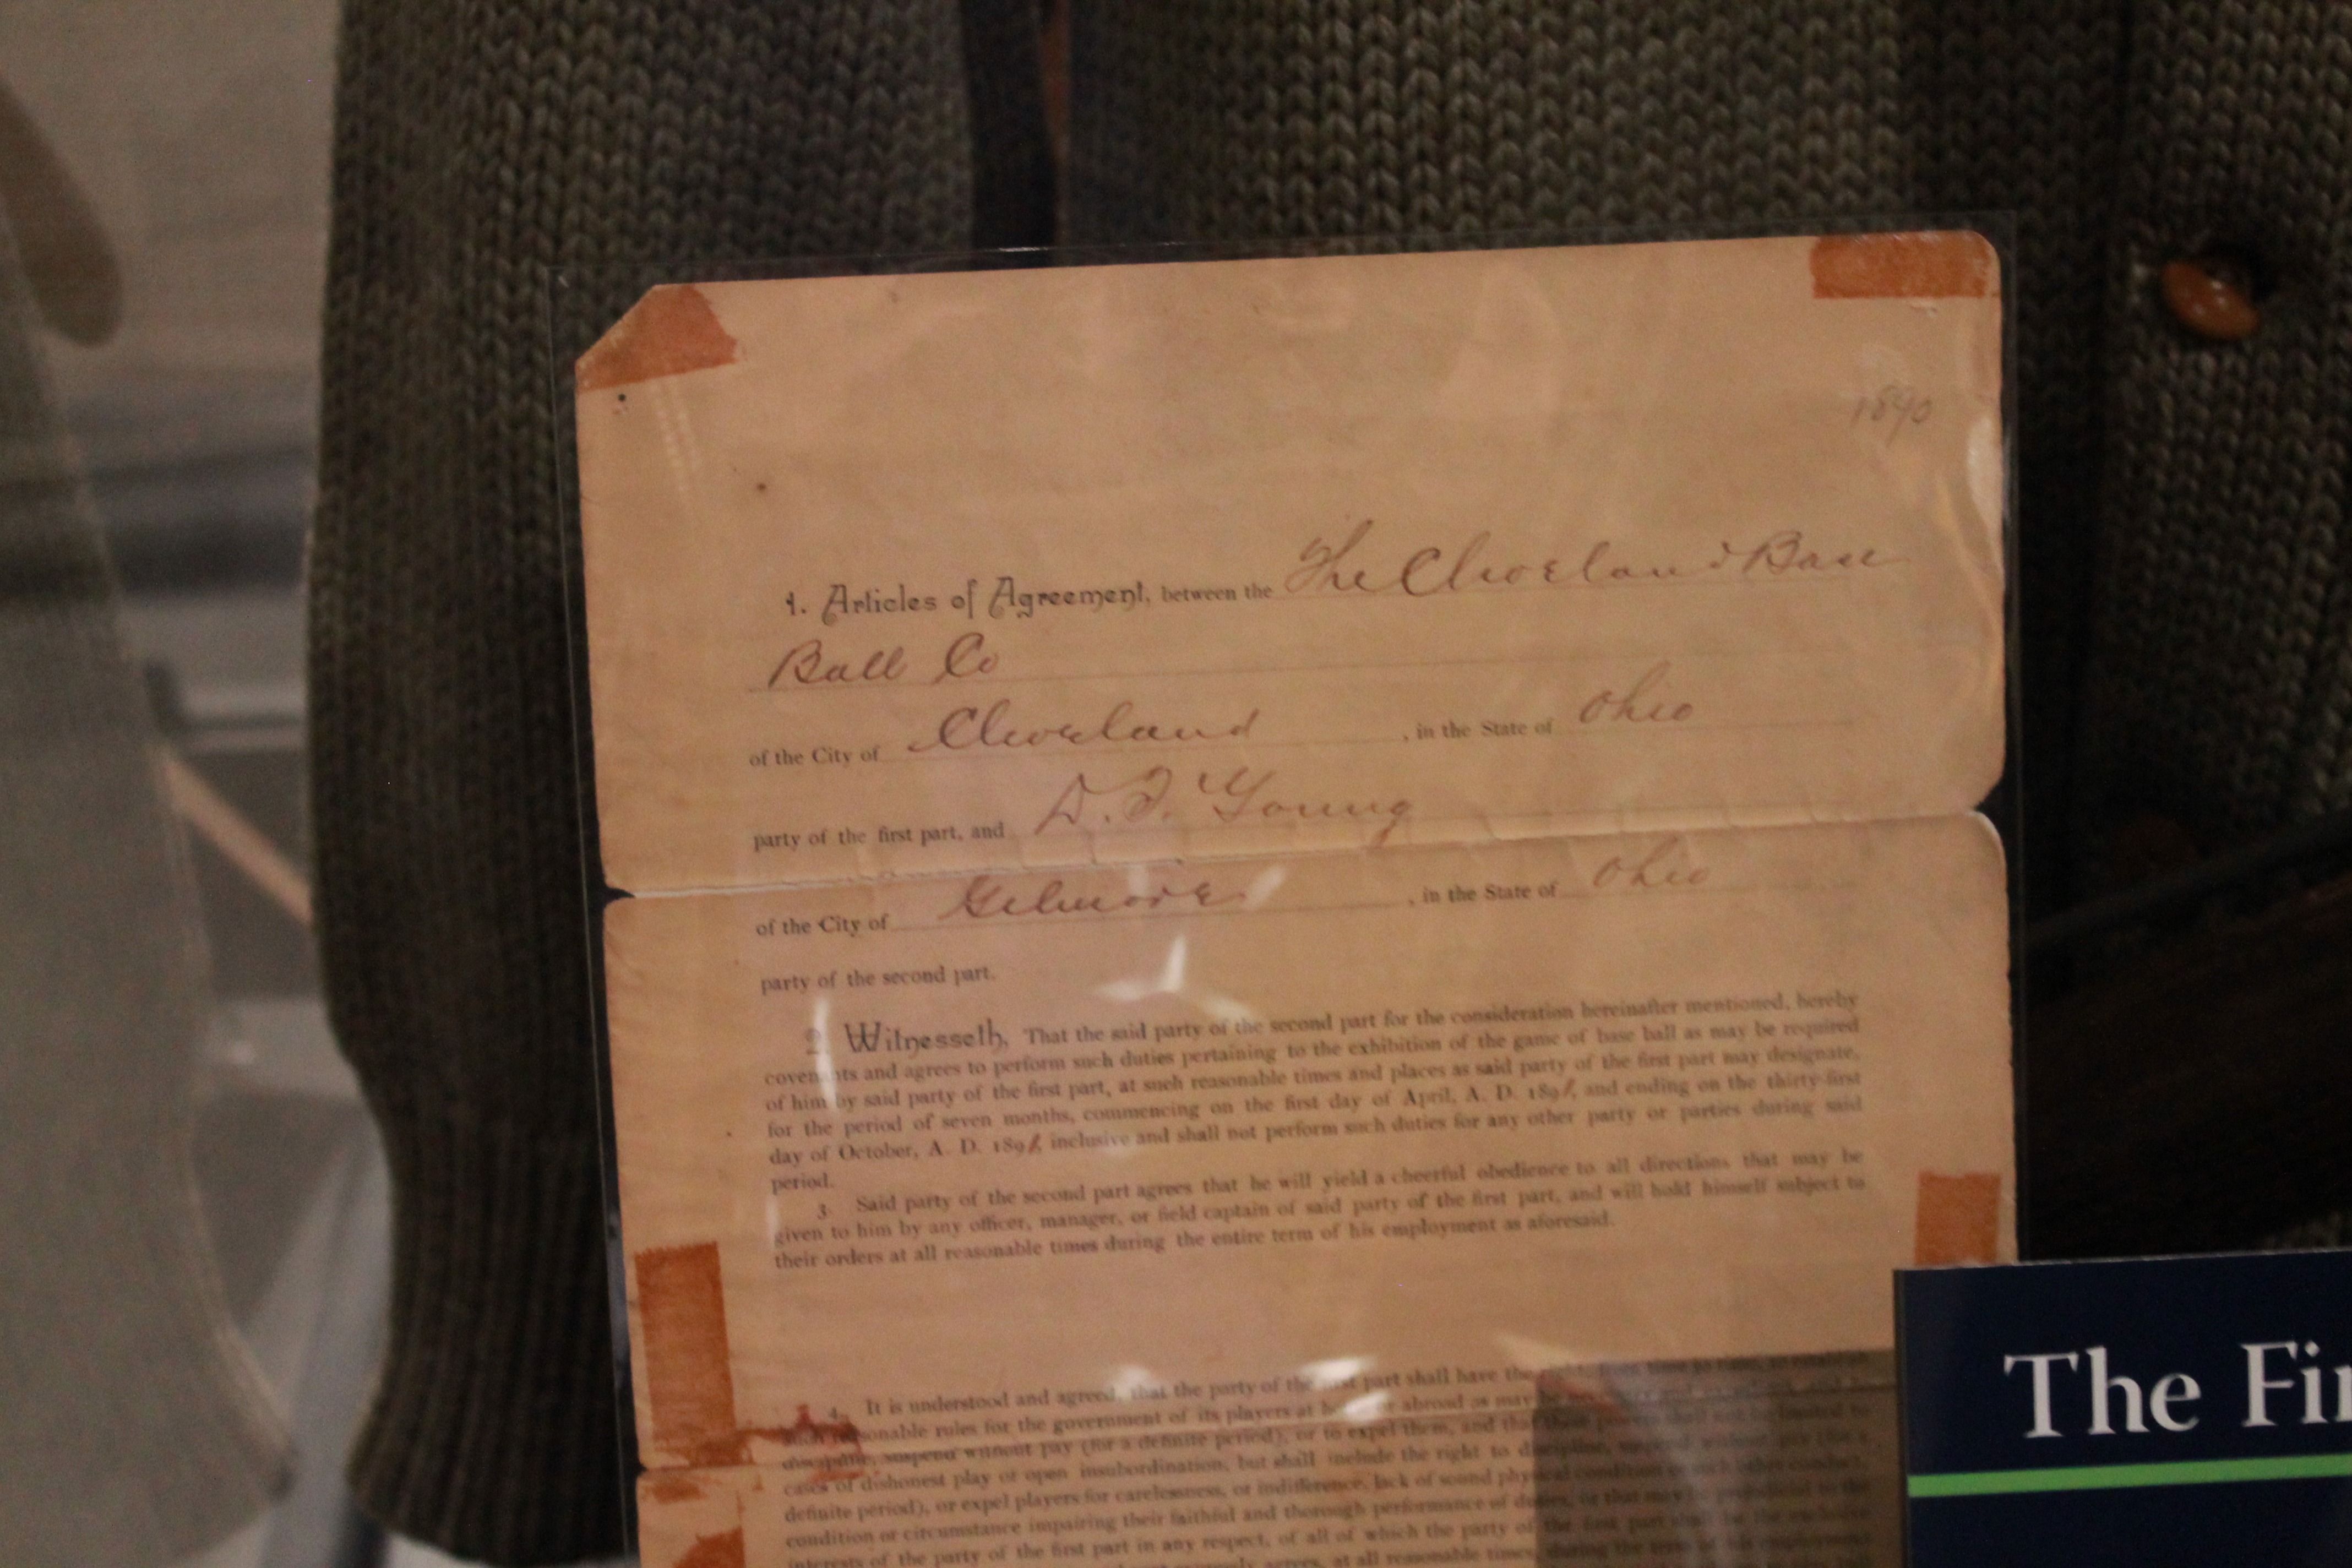 1890
1. Articles of Agreement, between the The Cleveland Base
Ball Co
of the City of Cleveland, in the State of Ohio
party of the first part, and D. T. Young
of the City of Gilmore, in the State of Ohio
party of the second part.
2 Witnesseth, That the said party of the second part for the consideration hereinafter mentioned, hereby
covenants and agrees to perform such duties pertaining to the exhibition of the game of base ball as may be required
of him by said party of the first part, at such reasonable times and places as said party of the first part may designate,
for the period of seven months, commencing on the first day of April, A. D. 1891, and ending on the thirty-first
day of October, A. D. 1891, inclusive and shall not perform such duties for any other party or parties during said
period.
3. Said party of the second part agrees that he will yield a cheerful obedience to all directions that may be
given to him by any officer, manager, or field captain of said party of the first part, and will hold himself subject to
their orders at all reasonable times during the entire term of his employment as aforesaid.
4. It is understood and agreed, that the party of the first part shall have the
such reasonable rules for the government of its players at home or abroad as may be
discipline, suspend without pay (for a definite period), or to expel them, and that
cases of dishonest play or open insubordination, but shall include the right to discipline, suspend without pay (for a
definite period), or expel players for carelessness, or indifference, lack of sound physical condition or such other conduct,
condition or circumstance impairing their faithful and thorough performance of duties, or that may be prejudicial to the
interests of the party of the first part in any respect, of all of which the party of the first part shall be the exclusive
agrees, at all reasonable times, during the term of his employment
The Fi